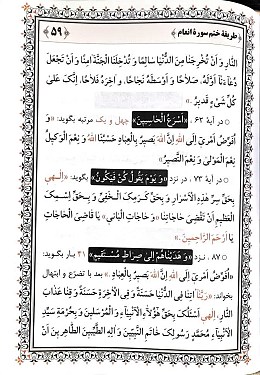 ﴿ طریقهٔ ختم سورهٔ انعام ﴾ ﴿ ٥٩ ﴾
النَّارِ وَ أَنْ تُخْرِجَنَا مِنَ الدُّنْيَا سَالِمًا وَ تُدْخِلَنَا الْجَنَّةَ اٰمِنًا وَ أَنْ تَجْعَلَ
دُعَاءَنَا أَوَّلَهُ، صَلَاحًا وَ أَوْسَطَهُ نَجَاحًا، وَ اٰخِرَهُ فَلَاحًا، إِنَّكَ عَلىٰ
كُلِّ شَىْءٍ قَدِيرٌ .»
○ در آیهٔ ٦٢ ، «أَسْرَعُ الْحَاسِبِينَ» چهل و یک مرتبه بگوید:
«أُفَوِّضُ أَمْرِي إِلَى اللهِ إِنَّ اللهَ بَصِيرٌ بِالْعِبَادِ حَسْبُنَا اللهُ وَ نِعْمَ الْوَكِيلُ
نِعْمَ الْمَوْلىٰ وَ نِعْمَ النَّصِيرُ»
○ در آیهٔ ٧٣ ، در نزد «وَ يَوْمَ يَقُولُ كُنْ فَيَكُونُ» بگوید: «إِلٰـهِي
بِحَقِّ سِرِّ هٰذِهِ الْأَسْرَارِ وَ بِحَقِّ كَرَمِكَ الْخَفِيِّ وَ بِحَقِّ إِسْمِكَ
الْعَظِيمِ أَنْ تَقْضِيَ حَاجَاتِنَا «وَ حاجات البانی» يَا قَاضِيَ الْحَاجَاتِ
يَا أَرْحَمَ الرَّاحِمِينَ .»
○ ٨٧ ، در نزد «وَ هَدَيْنَاهُمْ إِلىٰ صِرَاطٍ مُسْتَقِيمٍ» ٢١ بار بگوید:
«أُفَوِّضُ أَمْرِي إِلَى اللهِ إِنَّ اللهَ بَصِيرٌ بِالْعِبَادِ.» بعد با تضرّع و ابتهال
بخواند: «رَبَّنَا اٰتِنَا فِي الدُّنْيَا حَسَنَةً وَ فِي الْاٰخِرَةِ حَسَنَةً وَ قِنَا عَذَابَ
النَّارِ. إِلٰهِي أَسْئَلُكَ بِحَقِّ هٰؤُلَاءِ الْأَنْبِيَاءِ وَ الْمُرْسَلِينَ وَ بِحُرْمَةِ سَيِّدِ
الْأَنْبِيَاءِ مُحَمَّدٍ رَسُولِكَ خَاتَمِ النَّبِيِّينَ وَ اٰلِهِ الطَّيِّبِينَ الطَّاهِرِينَ أَنْ